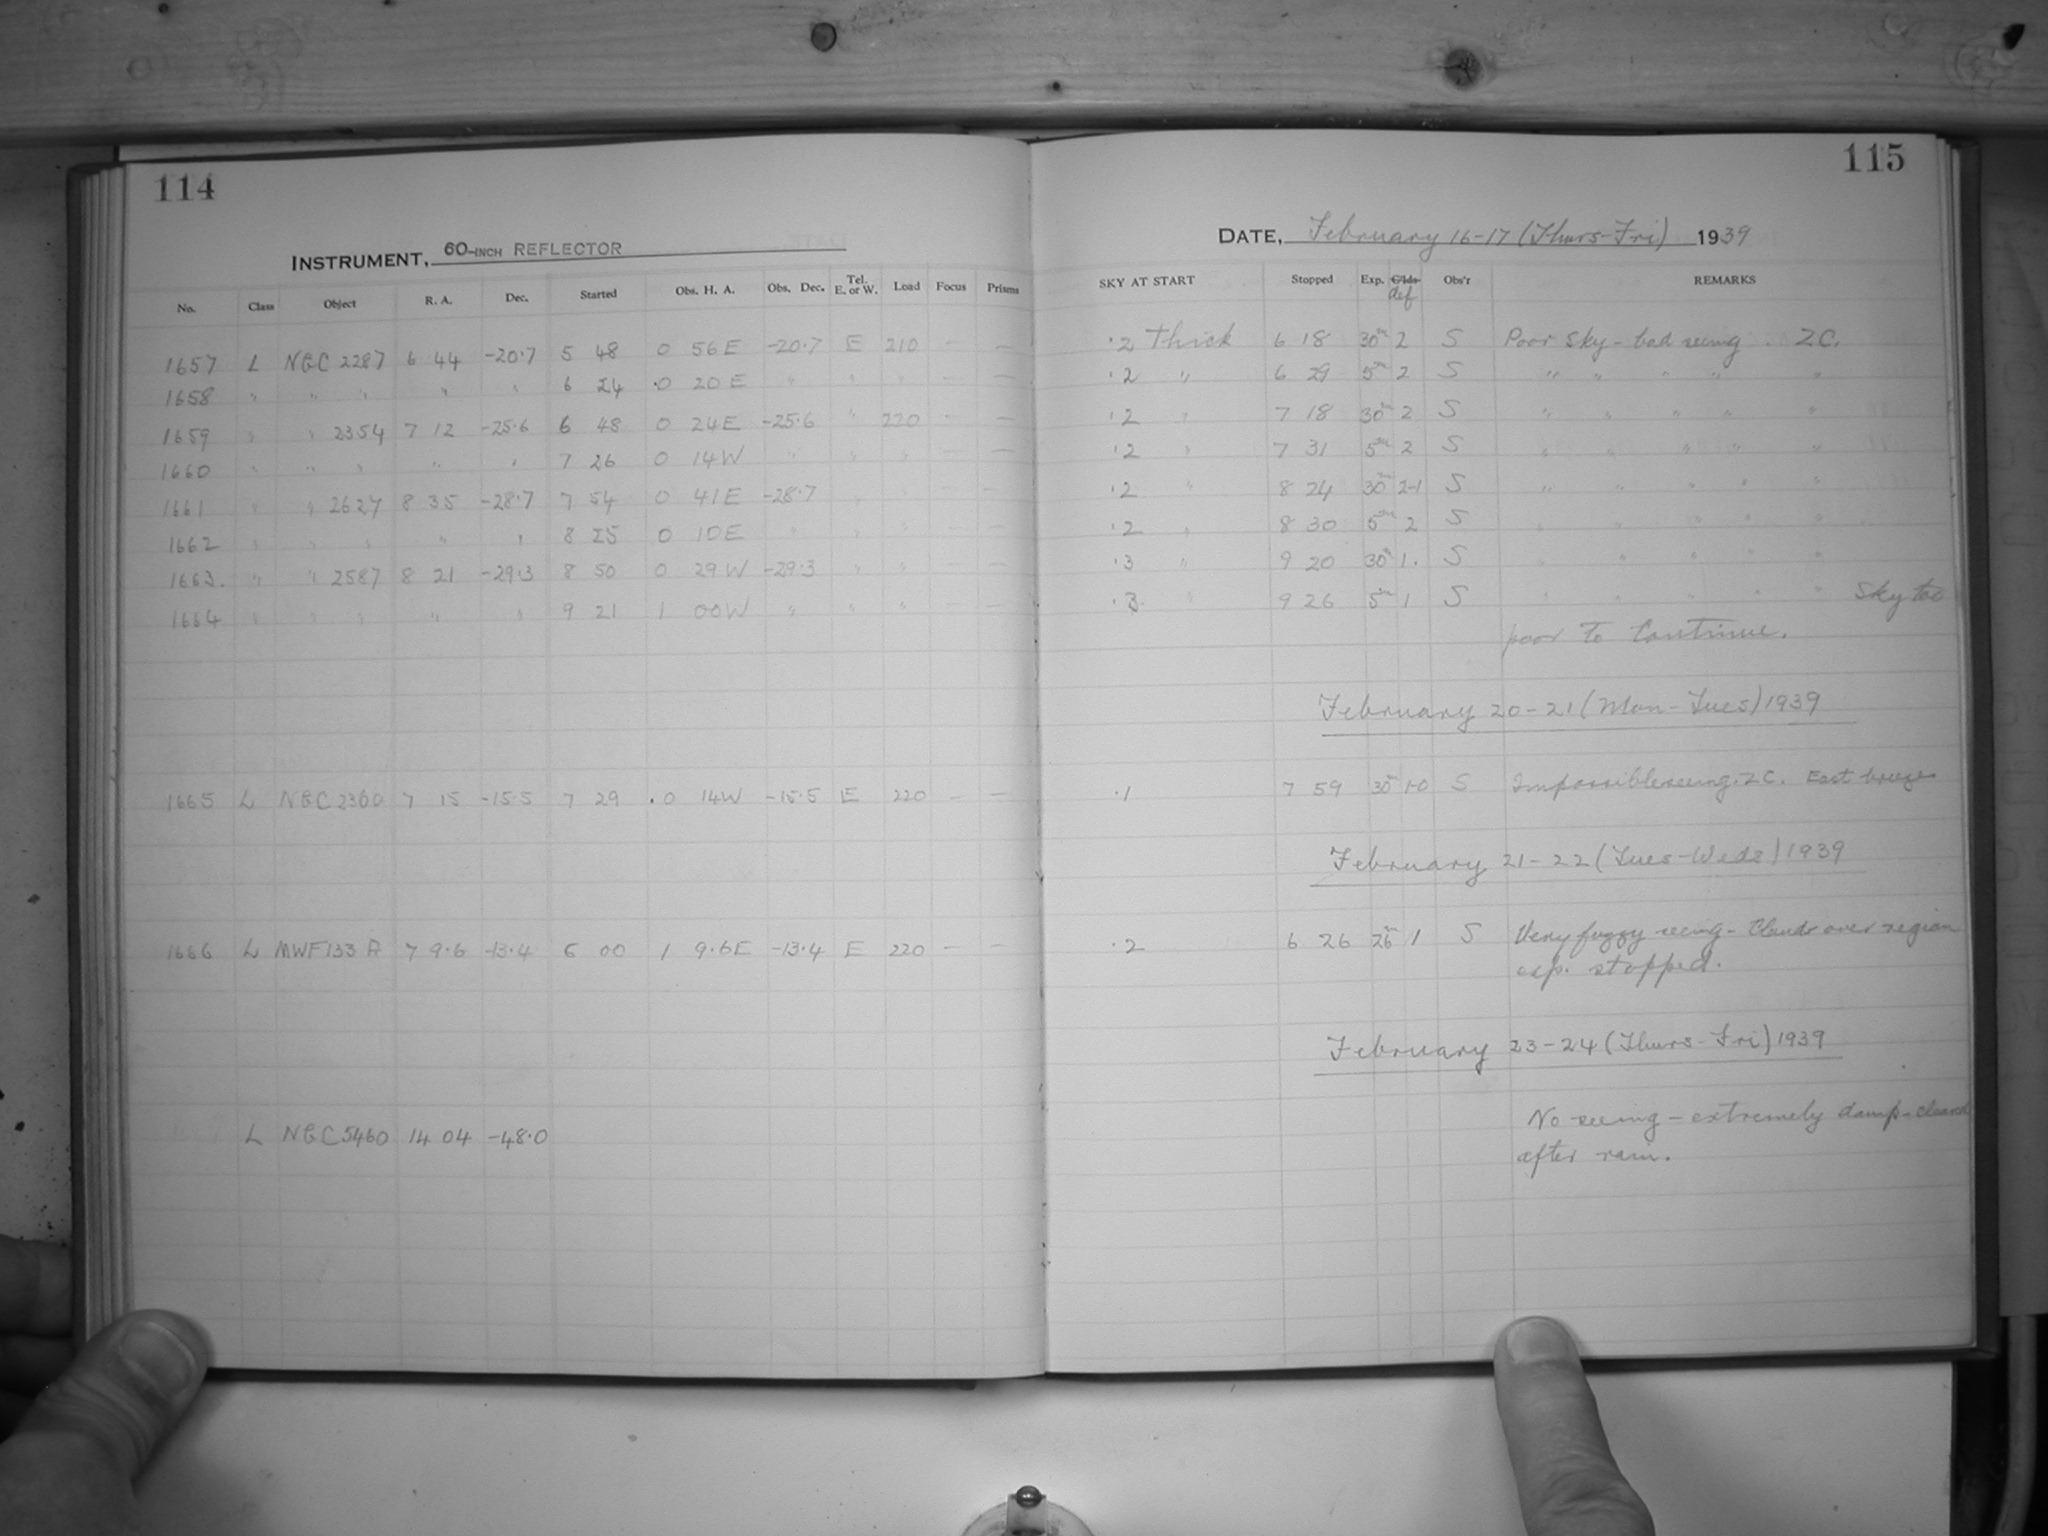 114
INSTRUMENT, 60-INCH REFLECTOR
No. Class Object R. A. Dec. Started Obs. H. A. Obs. Dec. Tel. E. or W. Load Focus Prisms
1657 L NGC 2287 6 44 -20.7 5 48 0 56E -20.7 E 210 - -
1658 " " " " " 6 24 0 20E " " " - -
1659 " " 2354 7 12 -25.6 6 48 0 24E -25.6 " 220 - -
1660 " " " " " 7 26 0 14W " " " - -
1661 " " 2627 8 35 -28.7 7 54 0 41E -28.7 " " - -
1662 " " " " " 8 25 0 10E " " " - -
1663. " " 2587 8 21 -29.3 8 50 0 29W -29.3 " " - -
1664 " " " " " 9 21 1 00W " " " - -
1665 L NGC 2360 7 15 -15.5 7 29 .0 14W -15.5 E 220 - -
1666 L MWF133 A 7 9.6 -13.4 6 00 1 9.6E -13.4 E 220 - -
L NGC 5460 14 04 -48.0
115
DATE, February 16-17 (Thurs-Fri) 1939
SKY AT START Stopped Exp. Obs'r REMARKS
def
.2 Thick 6 18 30m 2 S Poor sky - bad seeing. ZC.
.2 " 6 29 5m 2 S " " " " "
.2 " 7 18 30m 2 S " " " " "
.2 " 7 31 5m 2 S " " " " "
.2 " 8 24 30m 2-1 S " " " " "
.2 " 8 30 5m 2 S " " " " "
.3 " 9 20 30m 1. S " " " " "
.3 " 9 26 5m 1 S " " " " " Sky too
poor to Continue.
February 20-21 (Mon-Tues) 1939
.1 7 59 30m 1-0 S Impossible seeing. ZC. East breeze
February 21-22 (Tues-Weds) 1939
.2 6 26 26m 1 S Very fuzzy seeing - Clouds over region
exp. stopped.
February 23-24 (Thurs-Fri) 1939
No seeing - extremely damp - cleared
after rain.